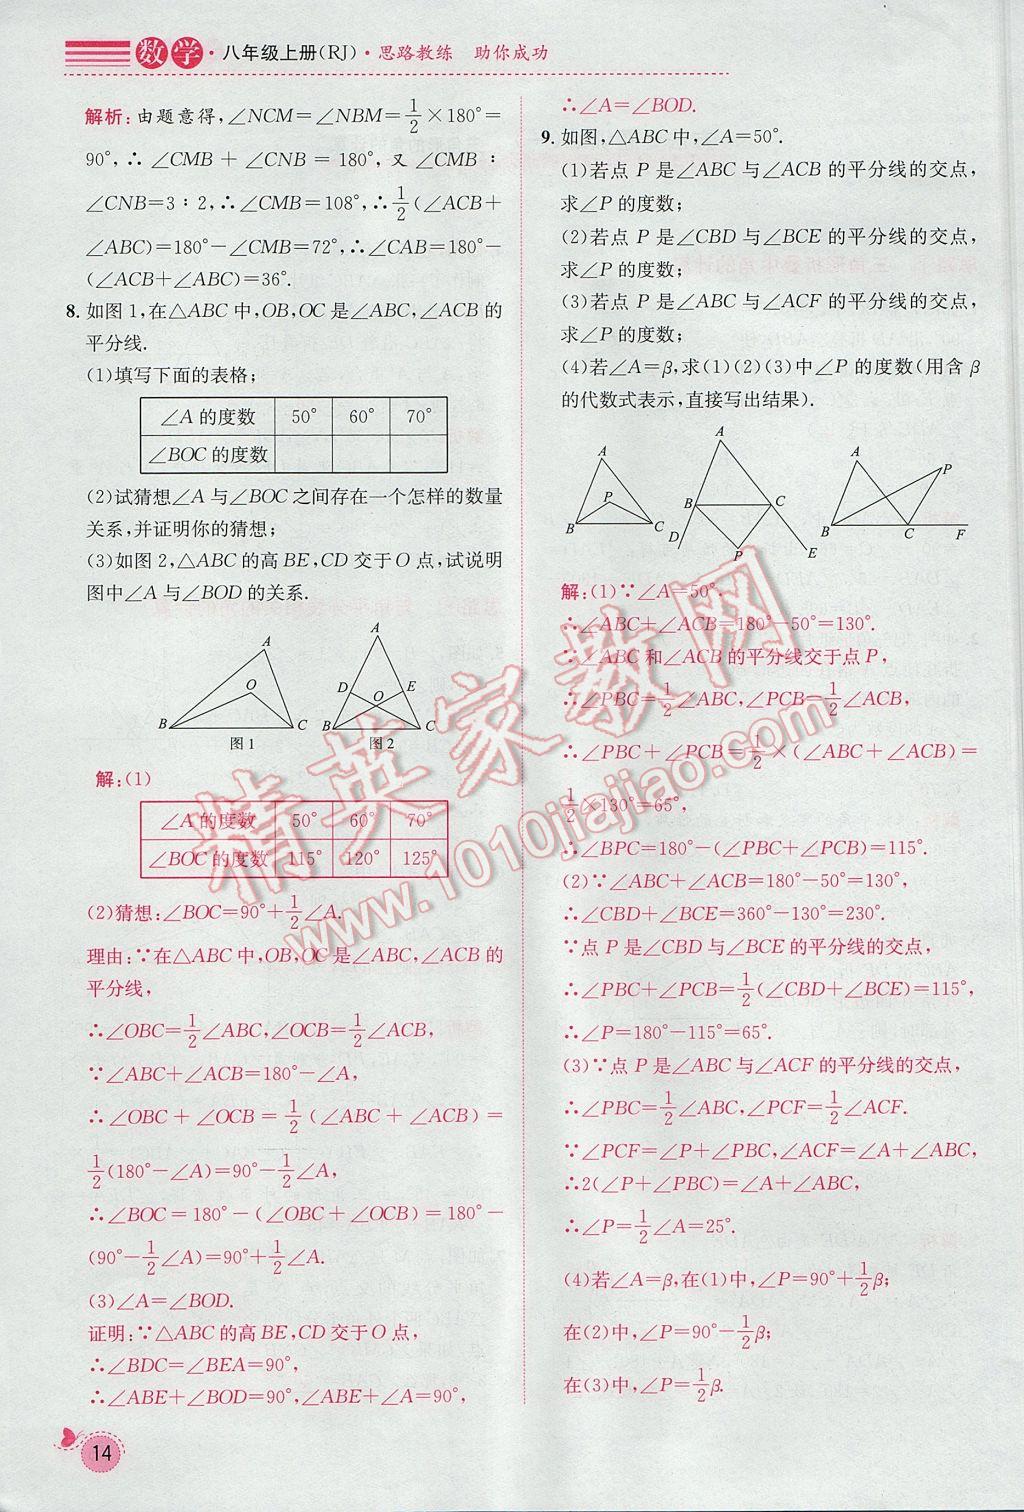 数学·八年级上册(RJ)·思路教练 助你成功
解析:由题意得,∠NCM=∠NBM=1/2×180°=
90°,∴∠CMB+∠CNB=180°,又∠CMB:
∠CNB=3:2,∴∠CMB=108°,∴1/2(∠ACB+
∠ABC)=180°-∠CMB=72°,∴∠CAB=180°-
(∠ACB+∠ABC)=36°.
8. 如图1,在△ABC中,OB,OC是∠ABC,∠ACB的
平分线.
(1)填写下面的表格;
∠A的度数 50° 60° 70°
∠BOC的度数
(2)试猜想∠A与∠BOC之间存在一个怎样的数量
关系,并证明你的猜想;
(3)如图2,△ABC的高BE,CD交于O点,试说明
图中∠A与∠BOD的关系.
A
O
B
C
图1
A
D
O
E
B
C
图2
解:(1)
∠A的度数 50° 60° 70°
∠BOC的度数 115° 120° 125°
(2)猜想:∠BOC=90°+1/2∠A.
理由:∵在△ABC中,OB,OC是∠ABC,∠ACB的
平分线,
∴∠OBC=1/2∠ABC,∠OCB=1/2∠ACB,
∵∠ABC+∠ACB=180°-∠A,
∴∠OBC+∠OCB=1/2(∠ABC+∠ACB)=
1/2(180°-∠A)=90°-1/2∠A,
∴∠BOC=180°-(∠OBC+∠OCB)=180°-
(90°-1/2∠A)=90°+1/2∠A.
(3)∠A=∠BOD.
证明:∵△ABC的高BE,CD交于O点,
∴∠BDC=∠BEA=90°,
∴∠ABE+∠BOD=90°,∠ABE+∠A=90°,
∴∠A=∠BOD.
9. 如图,△ABC中,∠A=50°.
(1)若点P是∠ABC与∠ACB的平分线的交点,
求∠P的度数;
(2)若点P是∠CBD与∠BCE的平分线的交点,
求∠P的度数;
(3)若点P是∠ABC与∠ACF的平分线的交点,
求∠P的度数;
(4)若∠A=β,求(1)(2)(3)中∠P的度数(用含β
的代数式表示,直接写出结果).
A
P
B
C
A
B
C
D
P
E
A
P
B
C
F
解:(1)∵∠A=50°.
∴∠ABC+∠ACB=180°-50°=130°.
∵∠ABC和∠ACB的平分线交于点P,
∴∠PBC=1/2∠ABC,∠PCB=1/2∠ACB,
∴∠PBC+∠PCB=1/2×(∠ABC+∠ACB)=
1/2×130°=65°,
∴∠BPC=180°-(∠PBC+∠PCB)=115°.
(2)∵∠ABC+∠ACB=180°-50°=130°,
∴∠CBD+∠BCE=360°-130°=230°.
∵点P是∠CBD与∠BCE的平分线的交点,
∴∠PBC+∠PCB=1/2(∠CBD+∠BCE)=115°,
∴∠P=180°-115°=65°.
(3)∵点P是∠ABC与∠ACF的平分线的交点,
∴∠PBC=1/2∠ABC,∠PCF=1/2∠ACF.
∵∠PCF=∠P+∠PBC,∠ACF=∠A+∠ABC,
∴2(∠P+∠PBC)=∠A+∠ABC,
∴∠P=1/2∠A=25°.
(4)若∠A=β,在(1)中,∠P=90°+1/2β;
在(2)中,∠P=90°-1/2β;
在(3)中,∠P=1/2β.
精英家教网
www.1010jiajiao.com
14